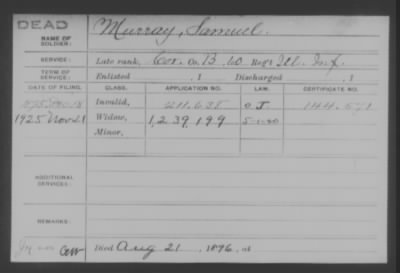 DEAD
NAME OF SOLDIER: Murray, Samuel.
SERVICE: Late rank, Cor. Co. B, 60 Reg't Ill. Inf.
TERM OF SERVICE: Enlisted , 1 Discharged , 1
DATE OF FILING. CLASS. APPLICATION NO. LAW. CERTIFICATE NO.
Invalid, 211.638 O J 144.571
1925 Nov 21 Widow, 1,239,199 5-1-20
Minor,
ADDITIONAL SERVICES:
REMARKS:
Died Aug 21, 1896, at